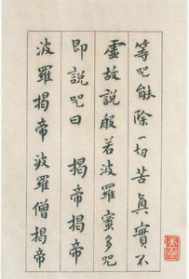 等咒能除一切苦真實不
虛故說般若波羅蜜多咒
即說咒曰　揭帝揭帝
波羅揭帝　波羅僧揭帝